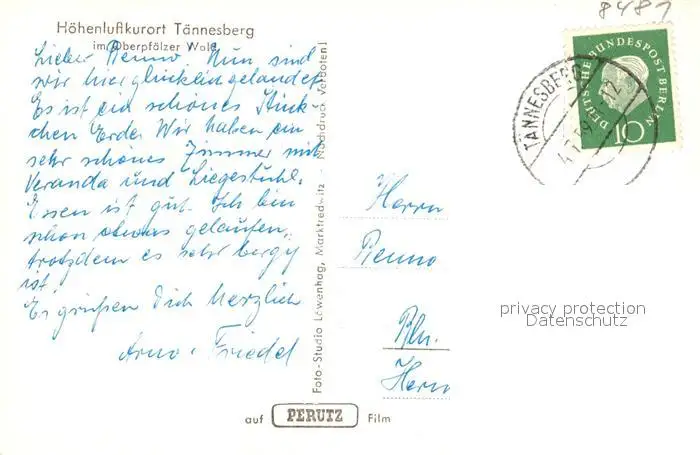 8489
Höhenluftkurort Tännesberg
im Oberpfälzer Wald
Lieber Benno. Nun sind
wir hier glücklich gelandet
Es ist ein schönes Stück
chen Erde. Wir haben ein
sehr schönes Zimmer mit
Veranda und Liegestühle.
Essen ist gut. Ich bin
schon etwas gelaufen,
trotzdem es sehr bergig
ist.
Es grüßen Dich herzlich
Arno + Friedel
Foto-Studio Löwenhag, Marktredwitz - Nachdruck verboten!
DEUTSCHE BUNDESPOST BERLIN
10
TÄNNESBERG
Herrn
Benno
Bln.
Herrn
privacy protection
Datenschutz
auf PERUTZ Film